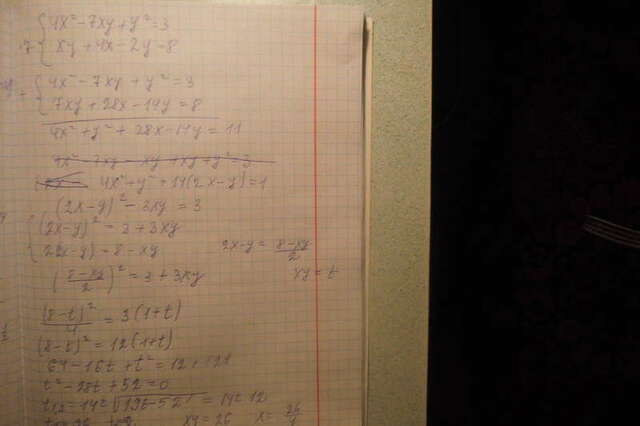 4x² - 7xy + y² = 3
·7 xy + 4x - 2y = 8
4x² - 7xy + y² = 3
7xy + 28x - 14y = 8
4x² + y² + 28x - 14y = 11
4x² - 7xy - xy + xy + y² = 3
4x² + y² + 14(2x - y) = 1
(2x - y)² - 3xy = 3
(2x - y)² = 3 + 3xy
2(2x - y) = 8 - xy
2x - y = (8 - xy)/2
((8 - xy)/2)² = 3 + 3xy
xy = t
(8 - t)²/4 = 3(1 + t)
(8 - t)² = 12(1 + t)
64 - 16t + t² = 12 + 12t
t² - 28t + 52 = 0
t₁,₂ = 14 ± √(196 - 52) = 14 ± 12
xy = 26 x = 26/y